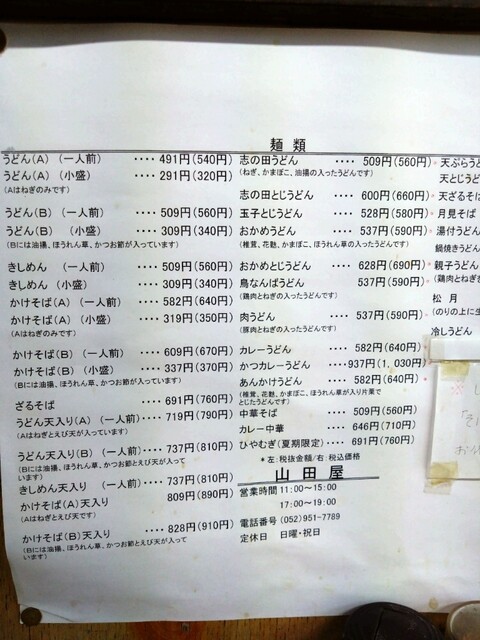 麺類
うどん(A) (一人前) ････ 491円(540円)
うどん(A) (小盛) ････ 291円(320円)
(Aはねぎのみです)
うどん(B) (一人前) ････ 509円(560円)
うどん(B) (小盛) ････ 309円(340円)
(Bには油揚、ほうれん草、かつお節が入っています)
きしめん (一人前) ････ 509円(560円)
きしめん (小盛) ････ 309円(340円)
かけそば(A) (一人前) ････ 582円(640円)
かけそば(A) (小盛) ････ 319円(350円)
(Aはねぎのみです)
かけそば(B) (一人前) ････ 609円(670円)
かけそば(B) (小盛) ････ 337円(370円)
(Bには油揚、ほうれん草、かつお節が入っています)
ざるそば ････ 691円(760円)
うどん天入り(A) (一人前) ････ 719円(790円)
(Aはねぎとえび天が入っています)
うどん天入り(B) (一人前) ････ 737円(810円)
(Bには油揚、ほうれん草、かつお節とえび天が入って
います)
きしめん天入り (一人前) ････ 737円(810円)
かけそば(A)天入り 809円(890円)
(Aはねぎとえび天です)
かけそば(B)天入り ････ 828円(910円)
(Bには油揚、ほうれん草、かつお節とえび天が入って
います)
志の田うどん ････ 509円(560円)
(ねぎ、かまぼこ、油揚の入ったうどんです)
志の田とじうどん ････ 600円(660円)
玉子とじうどん ････ 528円(580円)
おかめうどん ････ 537円(590円)
(椎茸、花麩、かまぼこ、ほうれん草の入ったうどんです)
おかめとじうどん ････ 628円(690円)
鳥なんばうどん 537円(590円)
(鶏肉とねぎの入ったうどんです)
肉うどん ････ 537円(590円)
(豚肉とねぎの入ったうどんです)
カレーうどん ････ 582円(640円)
かつカレーうどん ････937円(1,030円)
あんかけうどん ････ 582円(640円)
(椎茸、花麩、かまぼこ、ほうれん草が入り片栗で
とじたうどんです)
中華そば ････ 509円(560円)
カレー中華 ････ 646円(710円)
ひやむぎ(夏期限定) ････ 691円(760円)
*左:税抜金額/右:税込価格
山田屋
営業時間 11:00~15:00
17:00~19:00
電話番号 (052)951-7789
定休日 日曜・祝日
天ぷらうど
天とじうど
天ざるそば
月見そば
湯付うどん
鍋焼きうどん
親子うどん
(鶏肉とねぎ
松月
(のりの上に生
冷しうどん